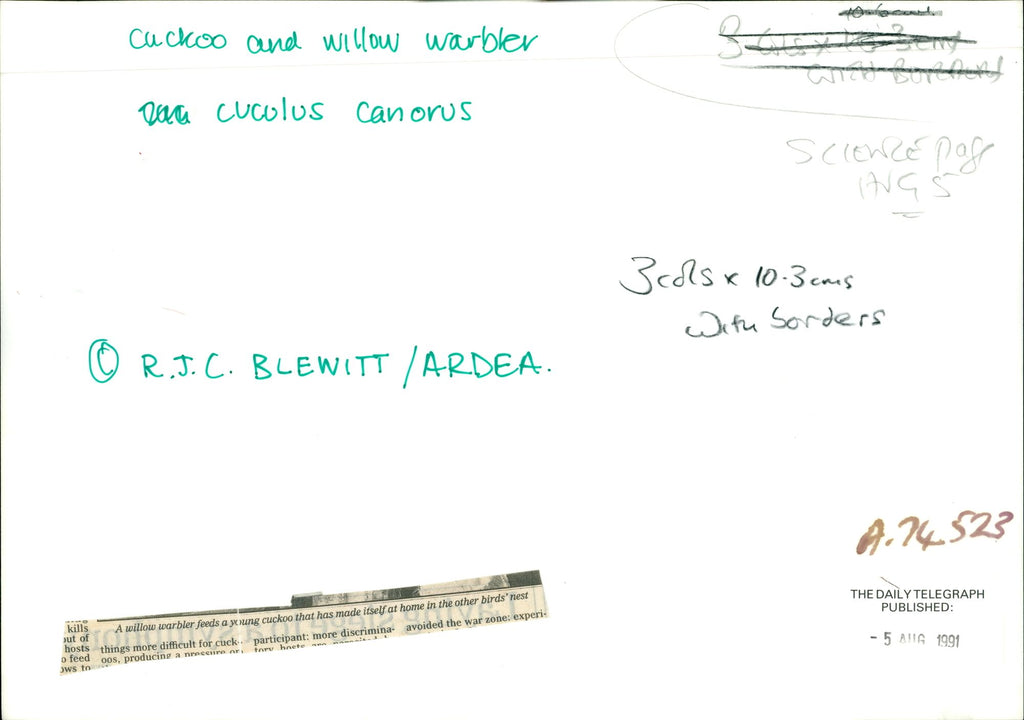 cuckoo and willow warbler
cuculus canorus
10.3cms
3 cols x 10.3cms
WITH BORDERS
SCIENCE page
AUG 5
3cols x 10.3cms
With borders
© R.J.C. BLEWITT/ARDEA.
A.74523
THE DAILY TELEGRAPH
PUBLISHED:
- 5 AUG 1991
A willow warbler feeds a young cuckoo that has made itself at home in the other birds' nest
kills
out of
hosts
o feed
ows to
things more difficult for cuck-
oos, producing a pressure or
participant: more discrimina-
tory hosts are
avoided the war zone: experi-